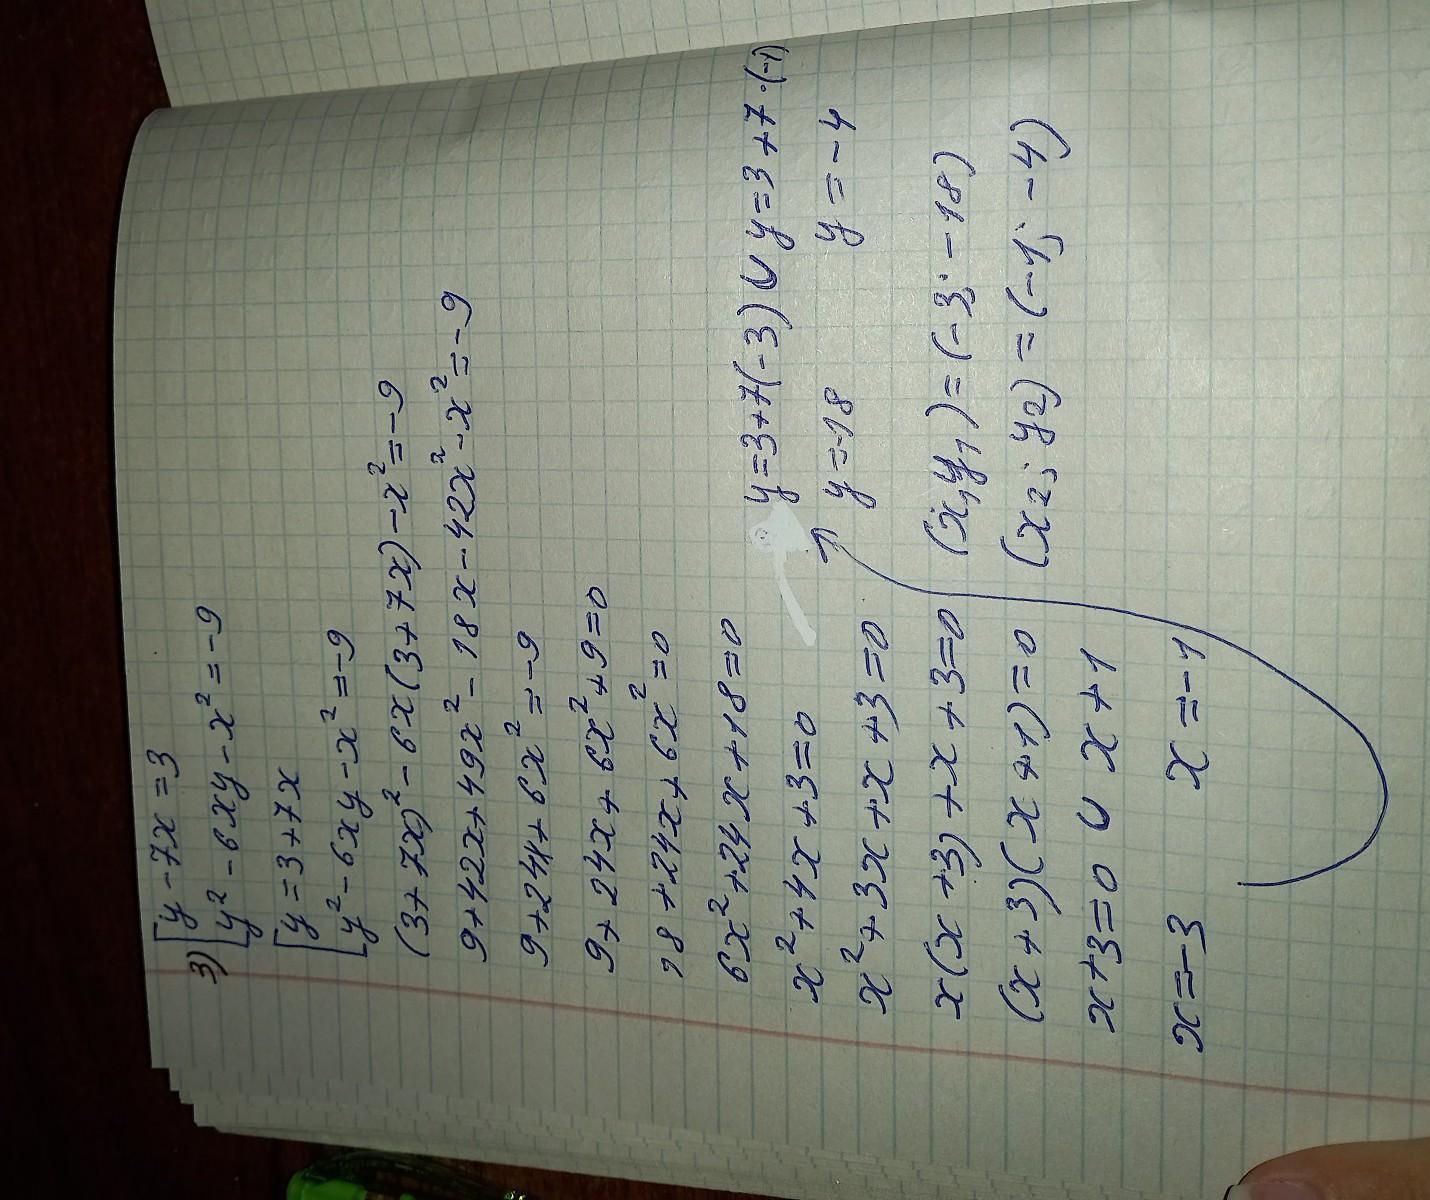 3) [y-7x=3
[y²-6xy-x²=-9
[y=3+7x
[y²-6xy-x²=-9
(3+7x)²-6x(3+7x)-x²=-9
9+42x+49x²-18x-42x²-x²=-9
9+24x+6x²=-9
9+24x+6x²+9=0
18+24x+6x²=0
6x²+24x+18=0
x²+4x+3=0
x²+3x+x+3=0
x(x+3)+x+3=0
(x+3)(x+1)=0
x+3=0 ∪ x+1
x=-3 x=-1
y=3+7(-3) ∪ y=3+7·(-1)
y=-18 y=-4
(x₁,y₁)=(-3;-18)
(x₂;y₂)=(-1;-4)